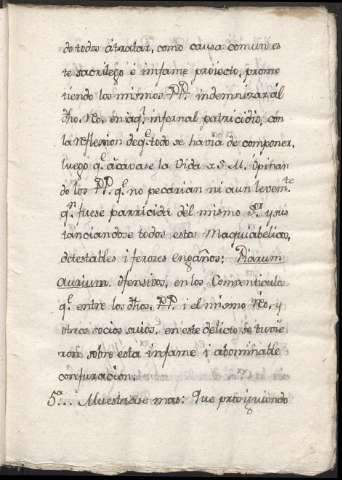 do todos átratar, como causa comun es
te sacrílego é infame proiecto, prome
tiendo los mismos PP. indemnizar ál
dho. Reo, en aq.l infernal patricidio, con
la reflexion de q.e todo se havia de componer,
luego q.e acavase la Vida a S. M. Opinan
do los PP. q.e no pecarian ni aun levem.te
q.n fuese parricida del mismo S.or y sus
tanciandose todos estos Maquiabelicos,
detestables i feroces engaños: Piarum
aurium ofensivos, en los Comventiculos
q.e entre los dhos. PP. i el mismo Reo, y
otros socios suios, en este delicto se tuvie
ron sobre esta infame i abominable
conjuracion.
5.a... Muestrase mas: Que prosiguiendo